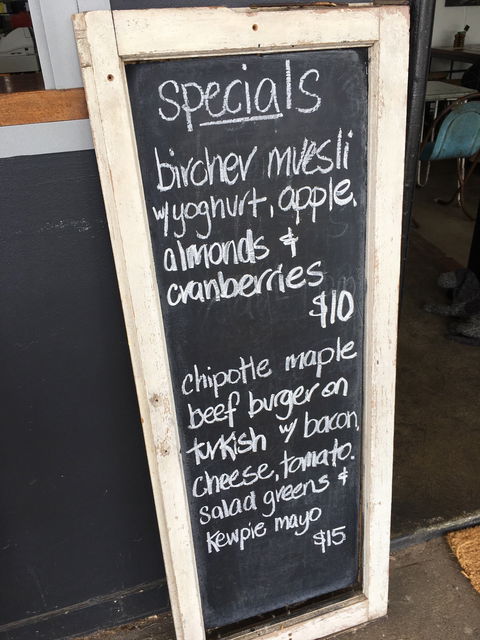 specials
bircher muesli
w/ yoghurt, apple,
almonds &
cranberries
$10
chipotle maple
beef burger on
turkish w/ bacon,
cheese, tomato.
salad greens &
kewpie mayo
$15